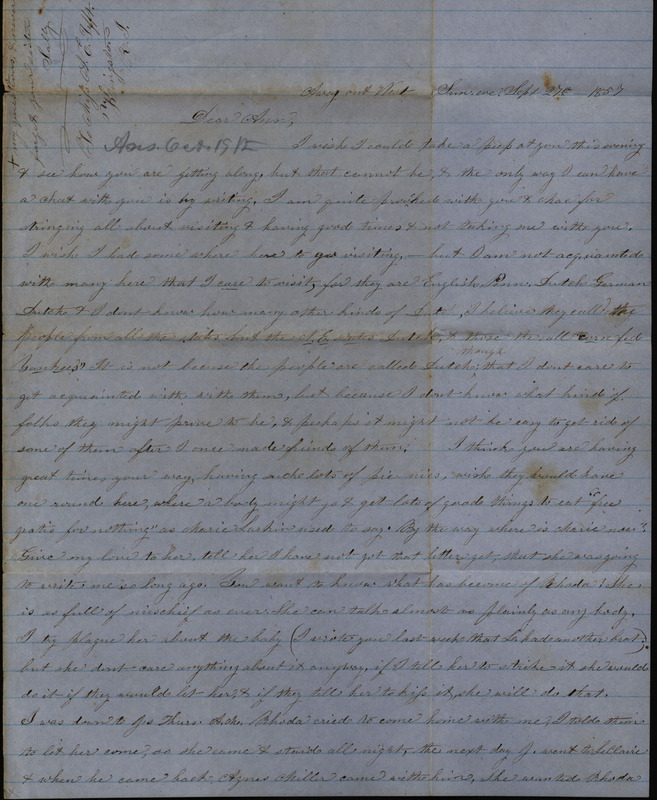 forget your sister
Sally
To Miss A. E.
Kingston
R. I.
Away out West Sun. eve. Sept 27th 1857
Dear Ann,
Ans. Oct. 19th
I wish I could take a peep at you this evening
& see how you are getting along, but that cannot be, & the only way I can have
a chat with you is by writing. I am quite provoked with you & chae for
stringing all about visiting & having good times & not taking me with you.
I wish I had some where here to go visiting, — but I am not acquainted
with many here that I care to visit, for they are English, Penn. Dutch German
Dutch & I dont know how many other kinds of I believe they call the
people from all the states but the N. E. states Dutch, & those the all corn fed
Yankees? It is not becuse the people are called Dutch though that I dont care to
get acquainted with with them, but because I dont know what kind of
folks they might prove to be, & perhaps it might not be easy to get rid of
some of them after I once made friends of them. I think you are having
great times, your way, having such lots of pic nics, wish they would have
one round here, where a body might go & get lots of goods things to eat "free
gratis for nothing" as charie Larkin used to say. By the way where is charie now?
Give my love to her, tell her I have not got that letter yet, that she was going
to write me so long ago. You want to know what has become of Rhoda? She
is as full of mischief as ever. She can talk almost as plainly as any body.
I try plague her about the baby (I wrote you last week that L had another boy).
but she dont care anything about it anyway, if I tell her to strike it she would
do it if they would let her, & if they tell her to kiss it, she will do that.
I was down to Js Thurs. Rhoda cried to come home with me, I told them
to let her come, so she came & staid all night, the next day J. went to LeClaire
& when he came back, Agnes Miller came with him, she wanted Rhoda